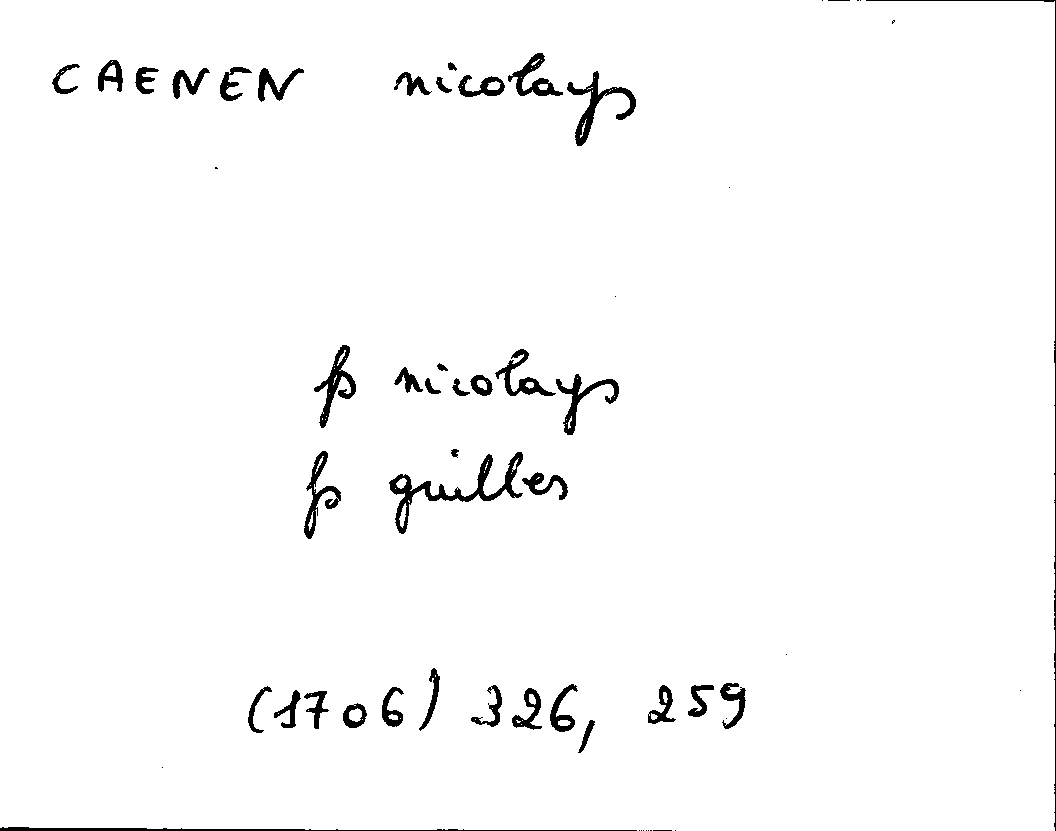 CAENEN nicolays
fs nicolays
fs guilles
(1706) 326, 259